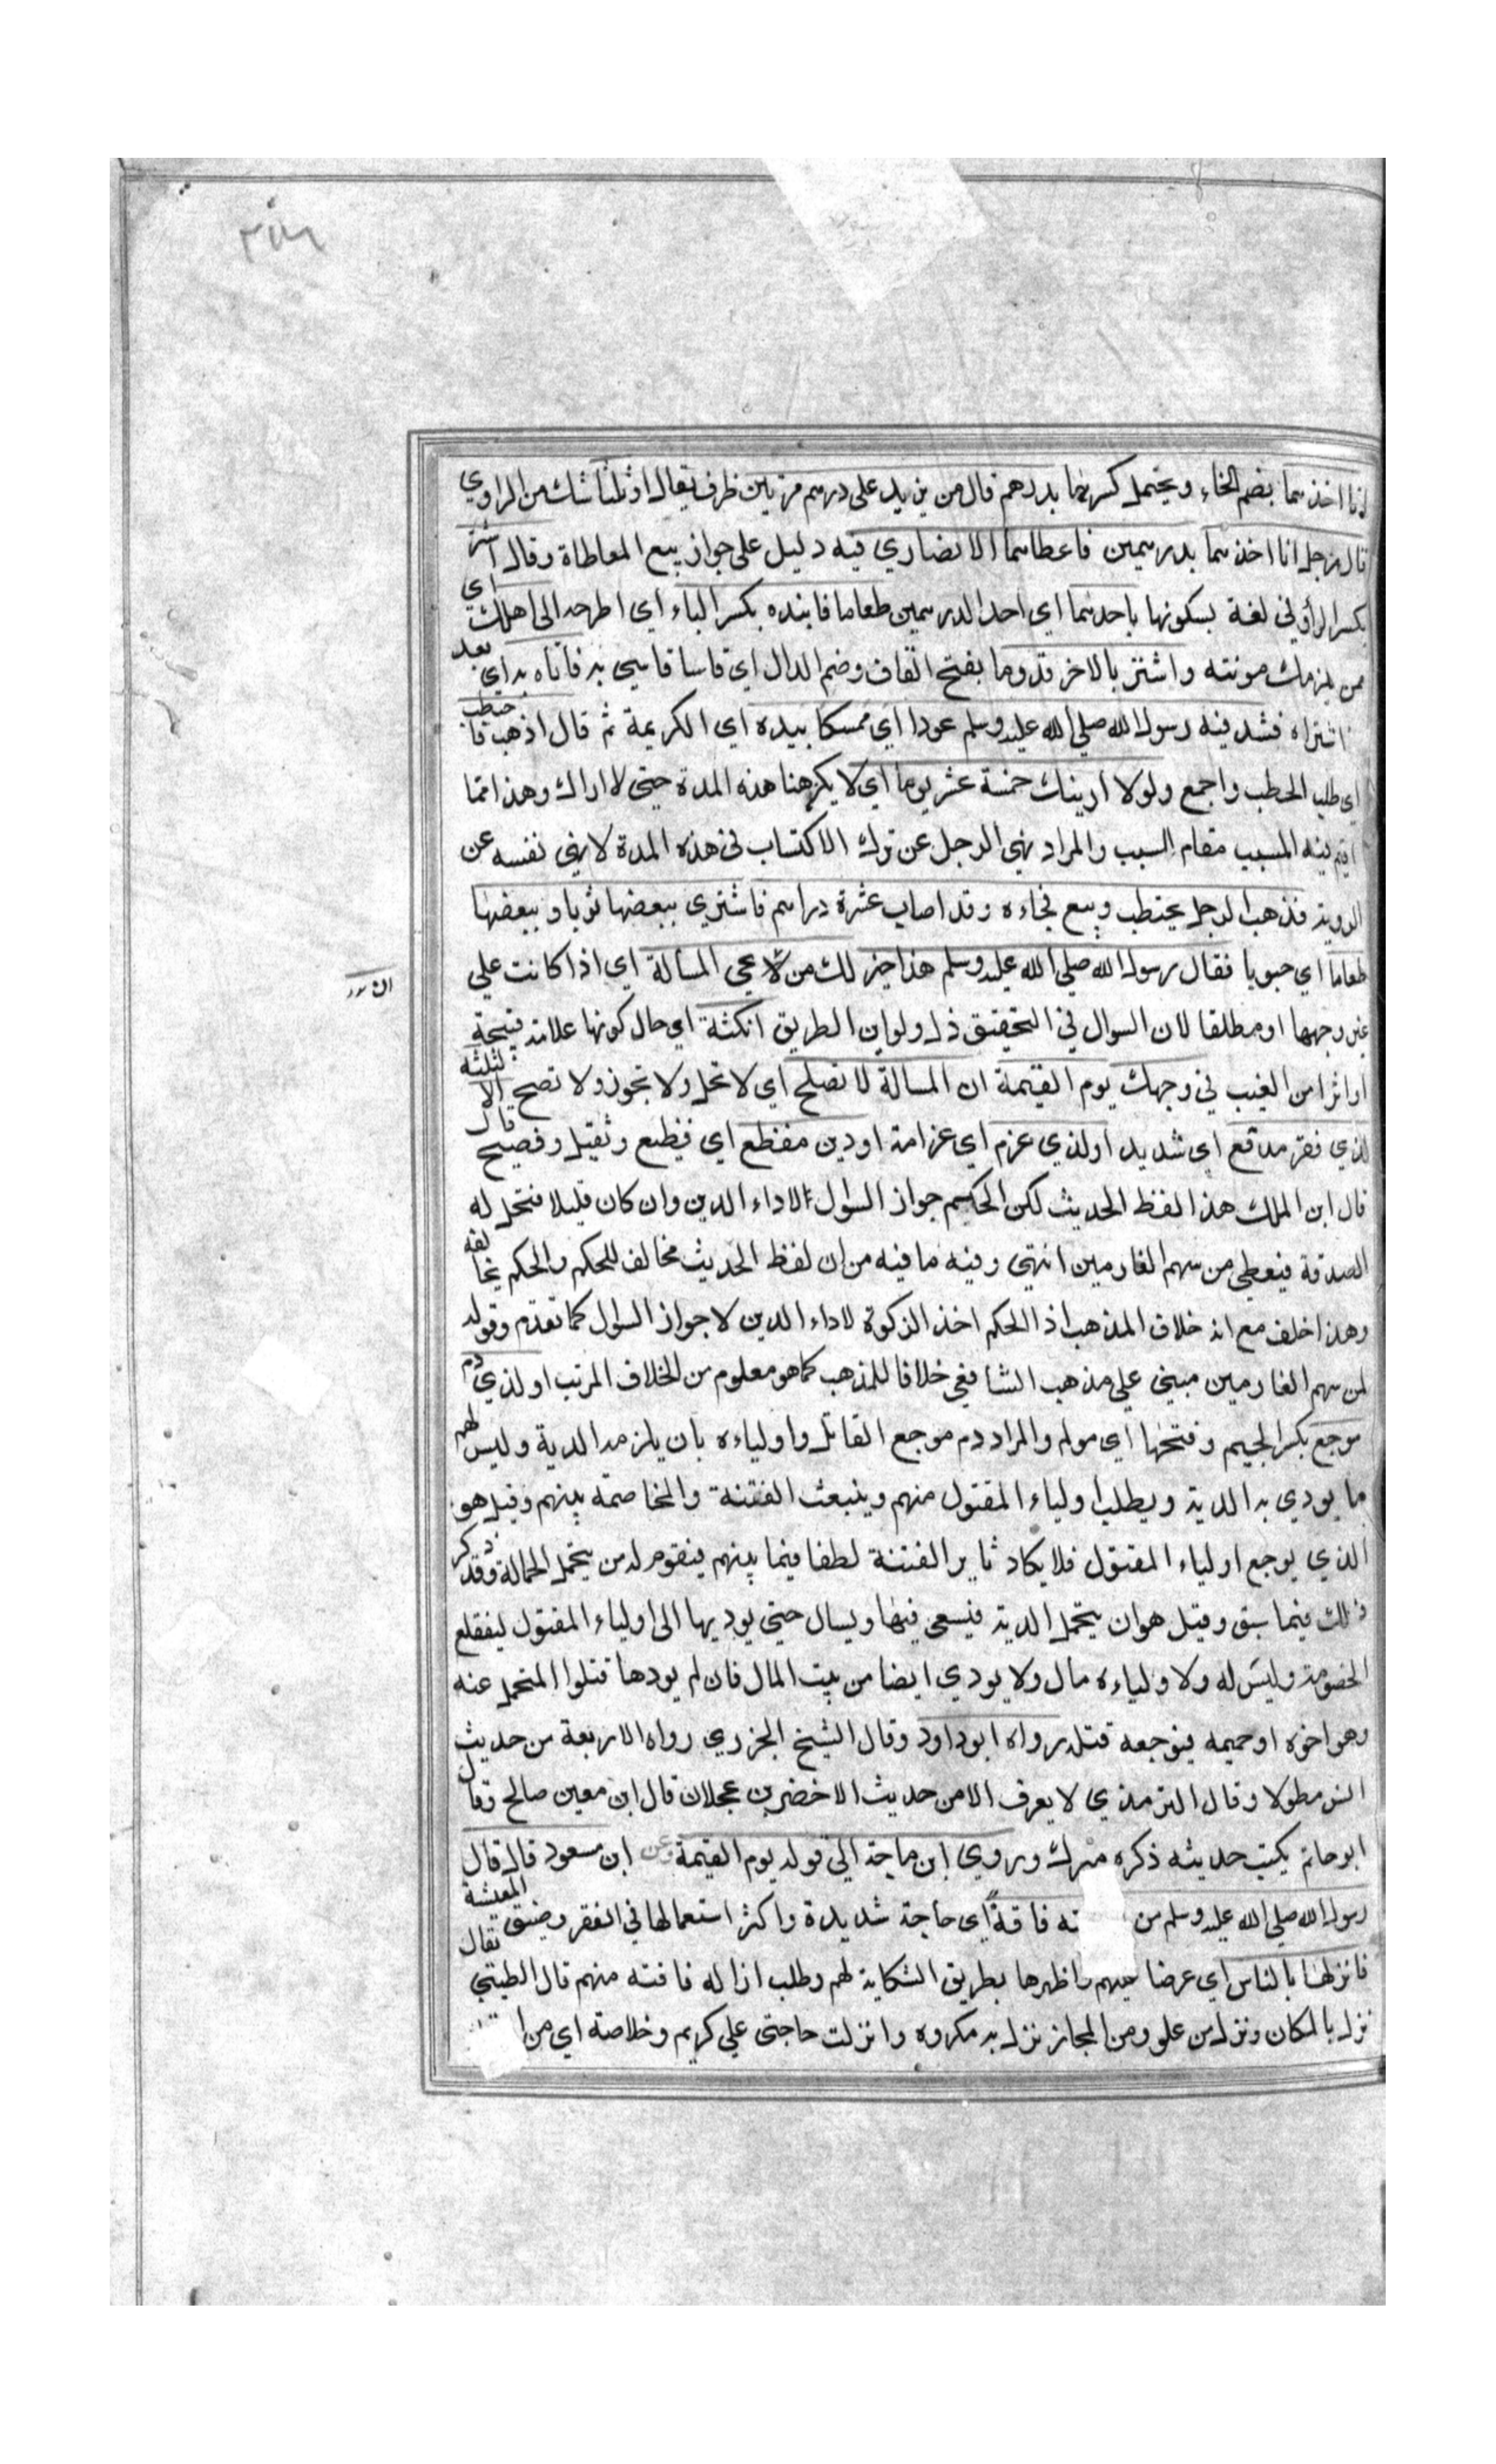 ٣٥٨
انا اخذهما بضم الخاء ويحتمل كسرها بدرهم قال من يزيد على درهم مرتين ظرف لقال او ثلثا شك من الراوي
قال رجل انا اخذهما بدرهمين فاعطاهما الانصاري فيه دليل على جواز بيع المعاطاة وقال اشتر
بكسر الراء وفي لغة بسكونها باحدهما اي احد الدرهمين طعاما فانبذه بكسر الباء اي اطرحه الى اهلك اي
ممن يلزمك مونته واشتر بالاخر قدوما بفتح القاف وضم الدال اي فاسا فاتني به فاتاه به اي بعد
اشتراه فشد فيه رسول الله صلي الله عليه وسلم عودا اي ممسكا بيده اي الكريمة ثم قال اذهب فاحتطب
اي طلب الحطب واجمع ولولا ارينك خمسة عشر يوما اي لا يكن هنا هذه المدة حتى لا اراك وهذا مما
اقيم فيه المسبب مقام السبب والمراد نهي الرجل عن ترك الاكتساب في هذه المدة لا نهي نفسه عن
الروية فذهب الرجل يحتطب ويبيع فجاءه وقد اصاب عشرة دراهم فاشتري ببعضها ثوبا وببعضها
طعاما اي حبوبا فقال رسول الله صلي الله عليه وسلم هذا خير لك من ان تجي المسألة اي اذا كانت علي
غير وجهها او مطلقا لان السوال في التحقيق ذل ولو اين الطريق انكتة اي حال كونها علامة قبيحة
او اثرا من العيب في وجهك يوم القيمة ان المسالة لا تصلح اي لا تحل ولا تجوز ولا تصح الا لثلثة
لذي فقر مدقع اي شديد او لذي غرم اي غرامة او دين مفظع اي فظيع وثقيل وفصيح قال
قال ابن الملك هذا لفظ الحديث لكن الحكم جواز السوال لاداء الدين وان كان قليلا فتحل له
الصدقة فيعطي من سهم الغارمين انتهي وفيه ما فيه من ان لفظ الحديث مخالف للحكم والحكم يخالفه
وهذا خلف مع انه خلاف المذهب اذ الحكم اخذ الزكوة لاداء الدين لا جواز السوال كما تقدم وقوله
لمن سهم الغارمين مبني علي مذهب الشافعي خلافا للمذهب كما هو معلوم من الخلاف المرتب او لذي دم
موجع بكسر الجيم وفتحها اي مولم والمراد دم موجع القاتل واولياءه بان يلزمه الدية وليس لهم
ما يودي به الدية ويطلب اولياء المقتول منهم وينبعث الفتنة والمخاصمة بينهم وقيل هو
الذي يوجع اولياء المقتول فلا يكاد ثاير الفتنة لطفا فيما بينهم فيقوم له من يتحمل الحمالة وقد ذكر
ذلك فيما سبق وقيل هو ان يتحمل الدية فيسعي فيها ويسال حتى يوديها الى اولياء المقتول ليقطع
الخصومة وليس له ولاولياءه مال ولا يودي ايضا من بيت المال فان لم يودها قتلوا المتحمل عنه
وهو اخوه او حميمه فيوجعه قتله رواه ابو داود وقال الشيخ الجزري رواه الاربعة من حديث
انس مطولا وقال الترمذي لا يعرف الا من حديث الاخضر بن عجلان قال ابن معين صالح وقال
ابو حاتم يكتب حديثه ذكره ميرك وروي ابن ماجة الي قوله يوم القيمة وعن ابن مسعود قال قال
رسول الله صلي الله عليه وسلم من ته فاقة اي حاجة شديدة واكثر استعمالها في الفقر وضيق المعيشة
فانزلها بالناس اي عرضا عليهم واظهرها بطريق الشكاية لهم وطلب ازالة فاقته منهم قال الطيبي يقال
نزل بالمكان ونزل من علو ومن المجاز نزل به مكروه وانزلت حاجتي علي كريم وخلاصة اي من